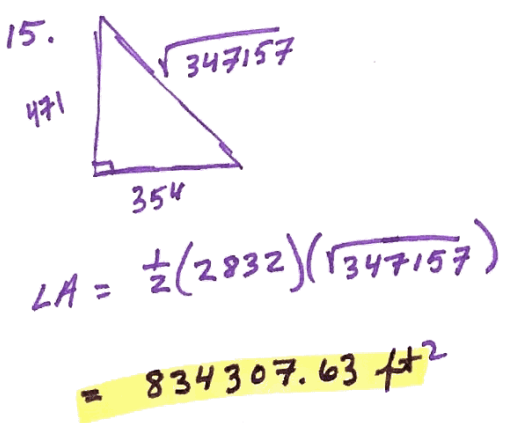 15.
√347157
471
354
LA = 1/2(2832)(√347157)
= 834307.63 ft²